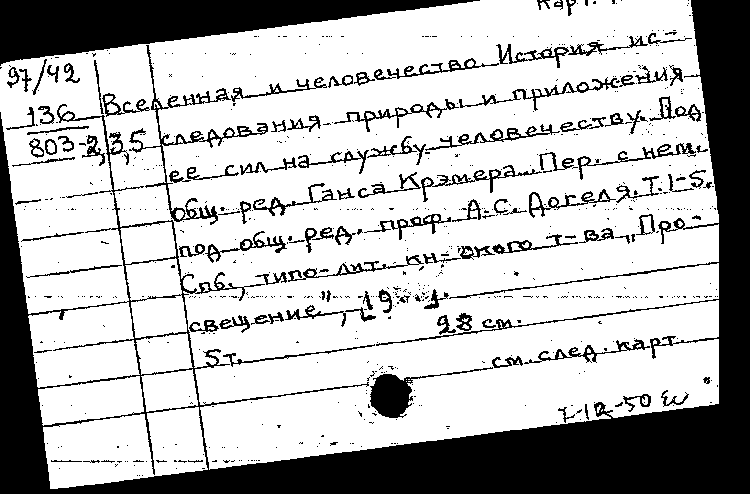 Карт.
97/42
136
803-2,3,5
Вселенная и человечество. История ис-
следования природы и приложения
ее сил на службу человечеству. Под
общ. ред. Ганса Крэмера. Пер. с нем.
под общ. ред. проф. А.С. Догеля. Т.1-5.
Спб., типо-лит. кн-ского т-ва „Про-
свещение", [19..].
5т. 28 см.
см. след. карт.